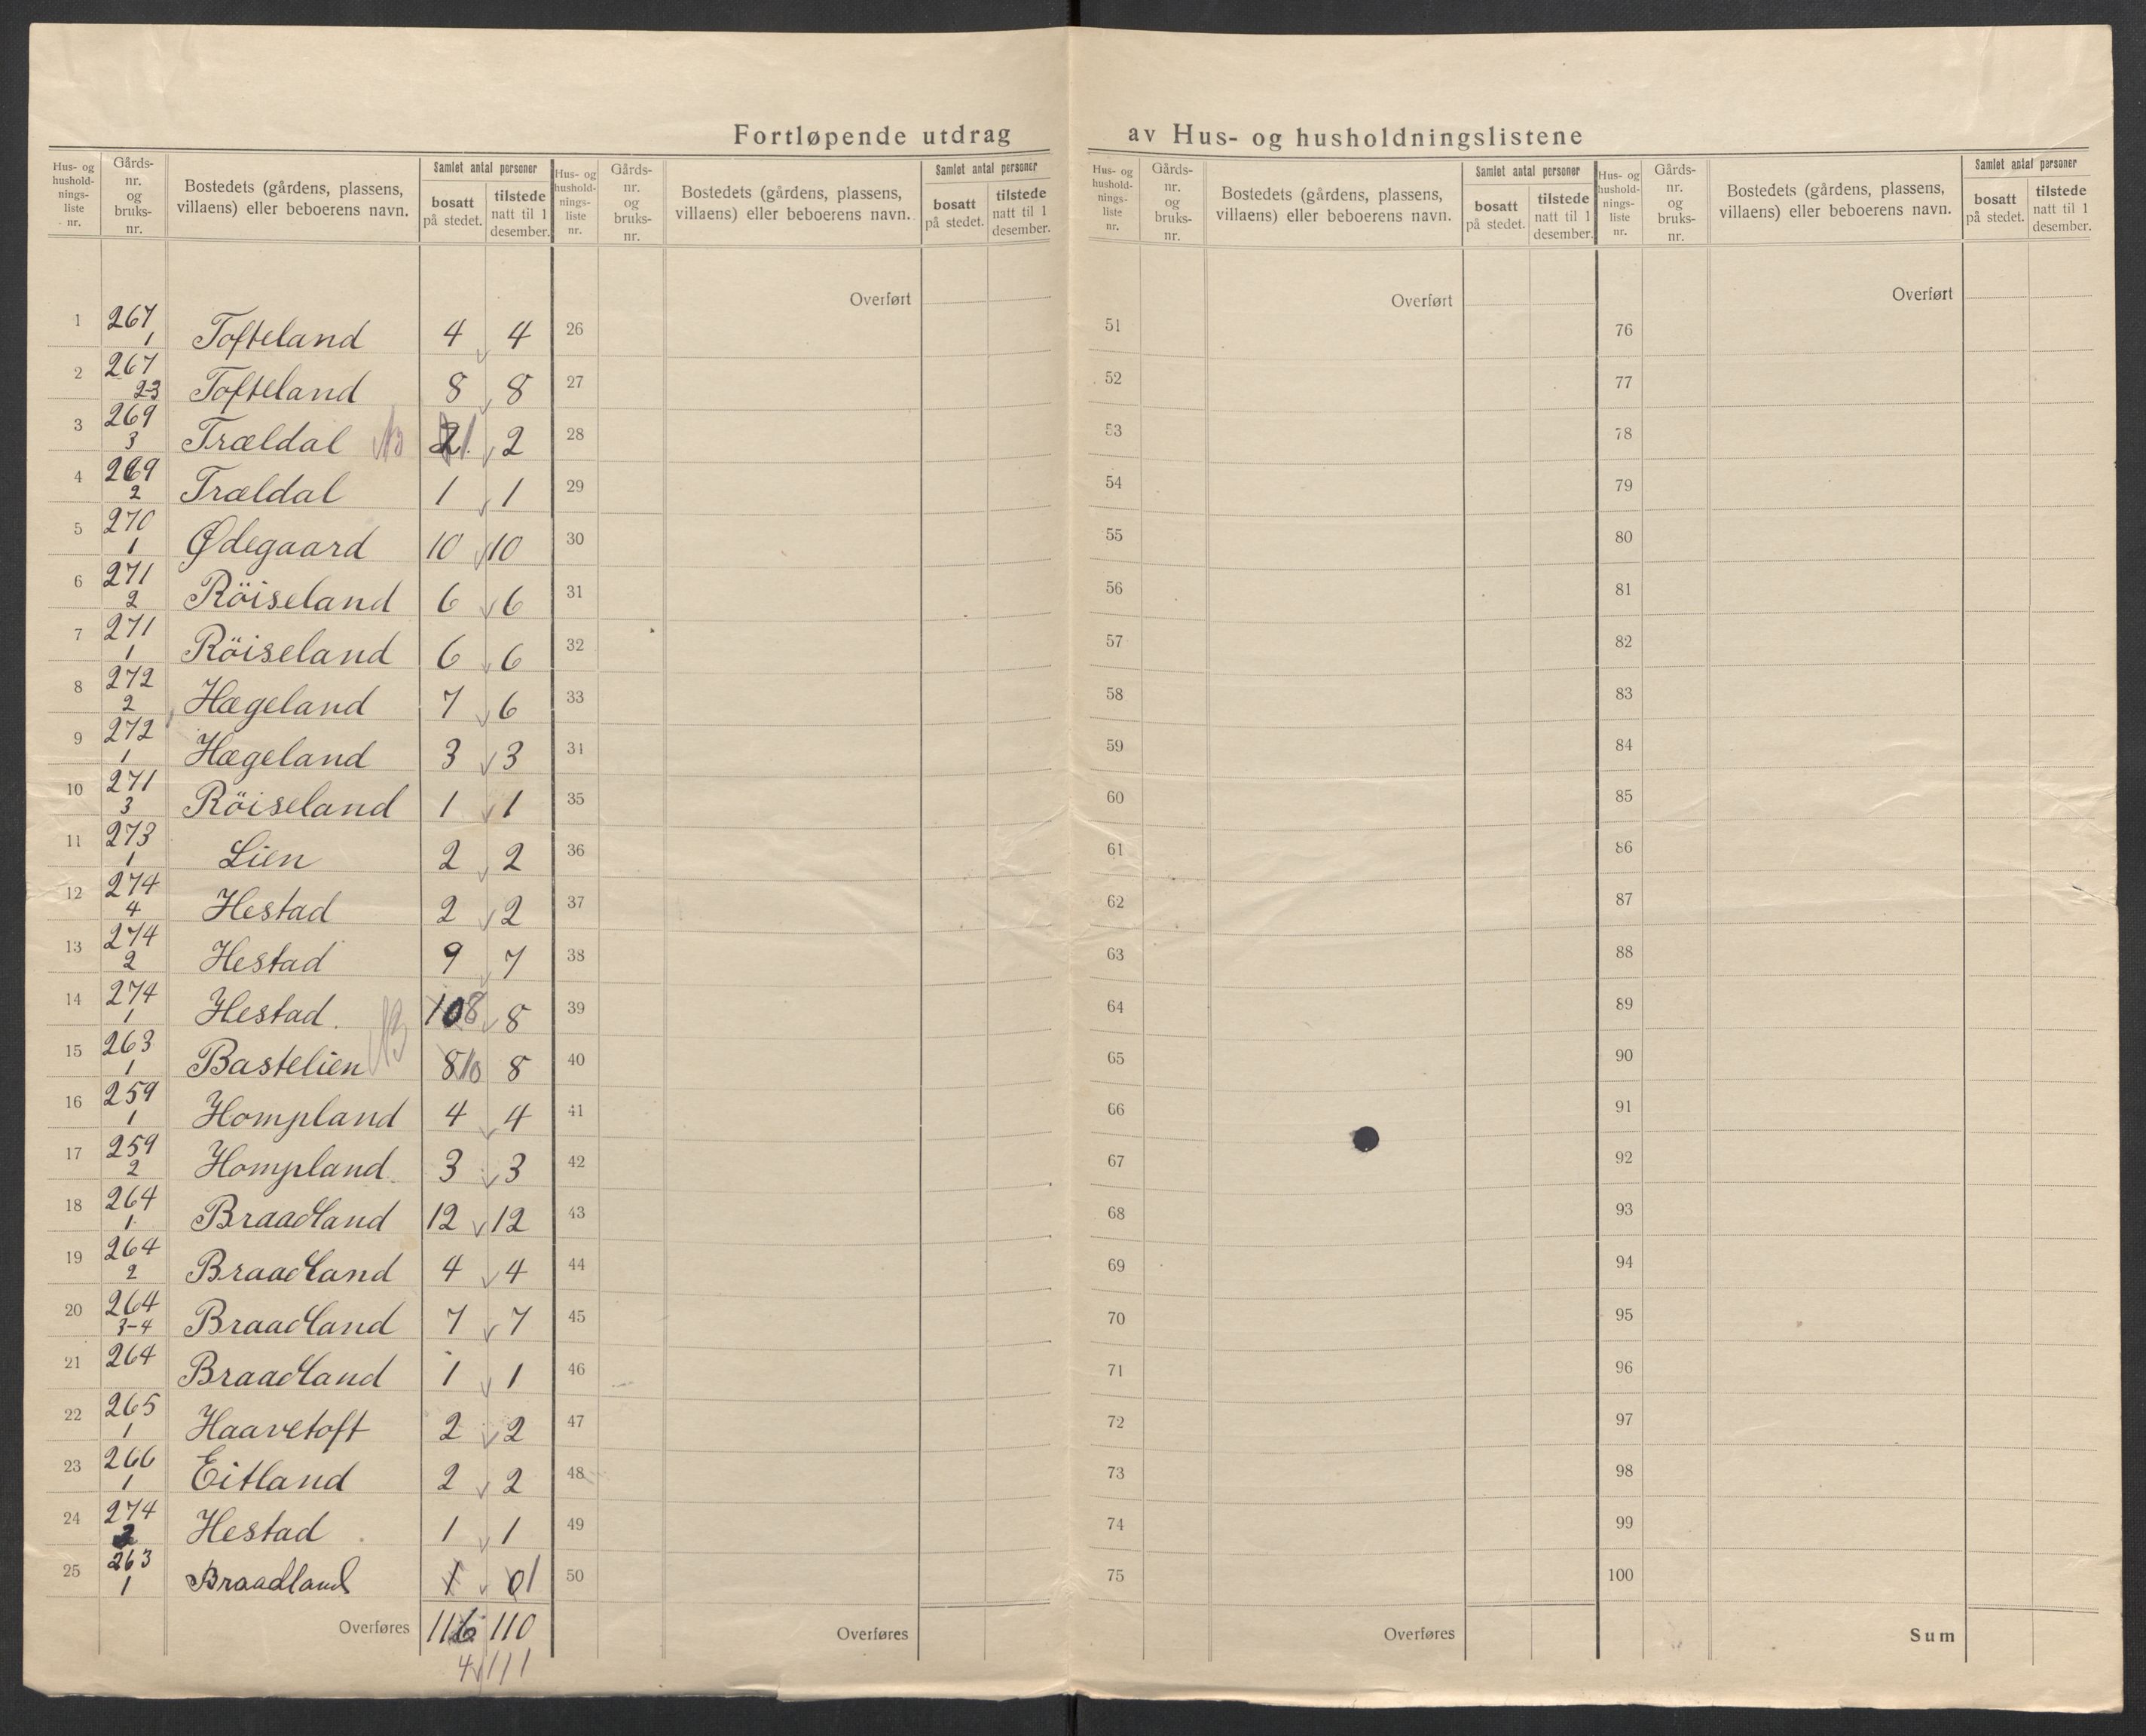 Fortløpende utdrag av Hus- og husholdningslistene
Hus- og husholdnings-liste nr. | Gårds-nr. og bruks-nr. | Bostedets (gårdens, plassens, villaens) eller beboerens navn. | Samlet antal personer | bosatt på stedet. | tilstede natt til 1 desember.
Hus- og hushold-nings-liste nr. | Gårds-nr. og bruks-nr. | Bostedets (gårdens, plassens, villaens) eller beboerens navn. | Samlet antal personer | bosatt på stedet. | tilstede natt til 1 desember.
Hus- og hushold-nings-liste nr. | Gårds-nr. og bruks-nr. | Bostedets (gårdens, plassens, villaens) eller beboerens navn. | Samlet antal personer | bosatt på stedet. | tilstede natt til 1 desember.
Hus- og hushold-nings-liste nr. | Gårds-nr. og bruks-nr. | Bostedets (gårdens, plassens, villaens) eller beboerens navn. | Samlet antal personer | bosatt på stedet. | tilstede natt til 1 desember.
Overført Overført Overført
1 267 1 Tofteland 4 4 26 51 76
2 267 2-3 Tofteland 8 8 27 52 77
3 269 3 Trældal 2 1 2 28 53 78
4 269 2 Trældal 1 1 29 54 79
5 270 1 Ødegaard 10 10 30 55 80
6 271 2 Röiseland 6 6 31 56 81
7 271 1 Röiseland 6 6 32 57 82
8 272 2 Hægeland 7 6 33 58 83
9 272 1 Hægeland 3 3 34 59 84
10 271 3 Röiseland 1 1 35 60 85
11 273 1 Lien 2 2 36 61 86
12 274 4 Hestad 2 2 37 62 87
13 274 2 Hestad 9 7 38 63 88
14 274 1 Hestad. 10 8 8 39 64 89
15 263 1 Bastelien 8 10 8 40 65 90
16 259 1 Hompland 4 4 41 66 91
17 259 2 Hompland 3 3 42 67 92
18 264 1 Braadland 12 12 43 68 93
19 264 2 Braadland 4 4 44 69 94
20 264 3-4 Braadland 7 7 45 70 95
21 264 Braadland 1 1 46 71 96
22 265 1 Haavetoft 2 2 47 72 97
23 266 1 Eitland 2 2 48 73 98
24 274 Hestad 1 1 49 74 99
25 263 1 Braadland 1 0 1 50 75 100
Overføres 116 110 Overføres Overføres Sum
4 111